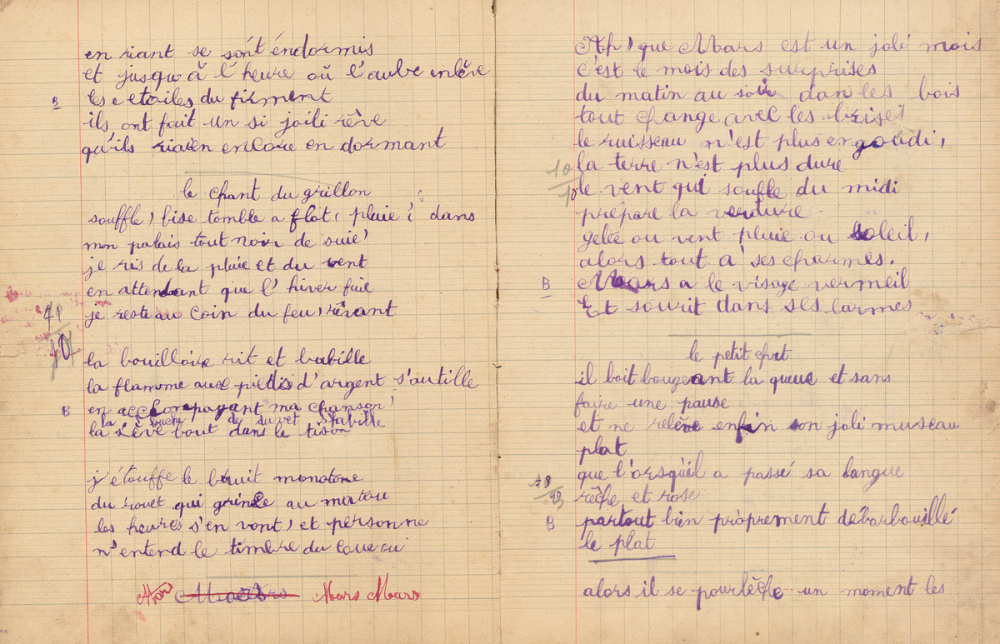 en riant se sont éndormis
et jusqu'à l'heure où l'aube enlève
B les etoiles du firment
ils ont fait un si joili rêve
qu'ils riaien encore en dormant
le chant du grillon
souffle, bise tombe a flot, pluie, dans
mon palais tout noir de suie,
je ris de la pluie et du vent
en attendant que l'hiver fuie
je reste au coin du feu, rêvant
la bouilloire rit et babille
la flamme aux pieds d'argent s'autille
B en accompagant ma chanson,
la bouche de duvet s'habille
la s'ève bout dans le tison
j'étouffe le bruit monotone
du rouet qui grince au
les heures s'en vont, et personne
n'entend le timbre du coucou
Mars Mars
Ah, que Mars est un joli mois
c'est le mois des surprises
du matin au soir dan les bois
tout change avec les brises
le ruisseau n'est plus engoudi,
10 la terre n'est plus dure
10 le vent qui souffle du midi
prépare la verdure
gelée ou vent pluie ou soleil,
alors tout a ses charmes.
B Mars a le visage vermeil
Et sourit dans ses larmes
le petit chat
il boit bougeant la queue et sans
faire une pause
et ne relève enfin son joli museau
plat
que l'orsqu'il a passé sa langue
rêche et rose
B partout bien pròprement débarbouillé
le plat
alors il se pourlèche un moment les